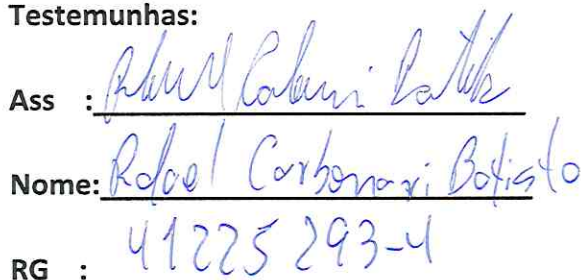 Testemunhas:
Ass :
Nome: Rafael Carbonari Batista
RG : 41225293-4